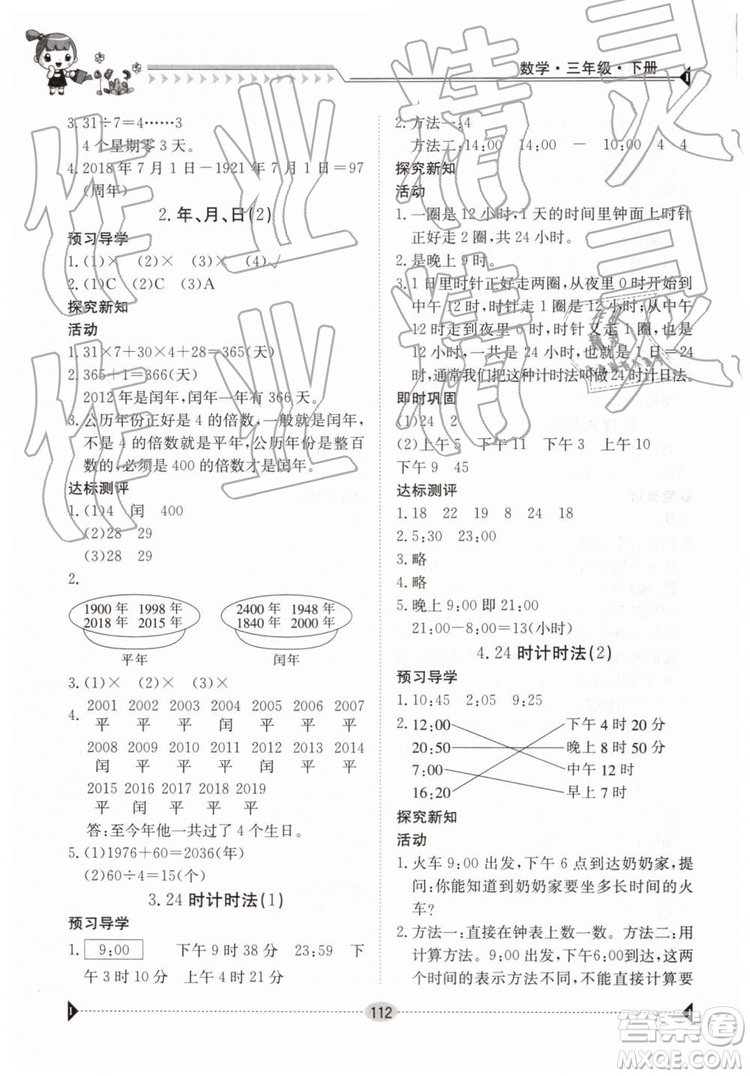 数学·三年级·下册
3.31÷7=4……3
4 个星期零 3 天。
4.2018 年 7 月 1 日-1921 年 7 月 1 日=97
(周年)
2.年、月、日(2)
预习导学
1.(1)× (2)× (3)× (4)✓
2.(1)C (2)C (3)A
探究新知
活动
1.31×7+30×4+28=365(天)
2.365+1=366(天)
2012 年是闰年,闰年一年有 366 天。
3.公历年份正好是 4 的倍数,一般就是闰年,
不是 4 的倍数就是平年,公历年份是整百
数的,必须是 400 的倍数才是闰年。
达标测评
1.(1)4 闰 400
(2)28 29
(3)28 29
2.
1900 年 1998 年
2018 年 2015 年
平年
2400 年 1948 年
1840 年 2000 年
闰年
3.(1)× (2)× (3)×
4.
2001 2002 2003 2004 2005 2006 2007
平 平 平 闰 平 平 平
2008 2009 2010 2011 2012 2013 2014
闰 平 平 平 闰 平 平
2015 2016 2017 2018 2019
平 闰 平 平 平
答:至今年他一共过了 4 个生日。
5.(1)1976+60=2036(年)
(2)60÷4=15(个)
3.24 时计时法(1)
预习导学
1. 9:00 下午 9 时 38 分 23:59 下
午 3 时 10 分 上午 4 时 21 分
2.方法一:4
方法二:14:00 14:00 - 10:00 4 4
探究新知
活动
1.一圈是 12 小时,1 天的时间里钟面上时针
正好走 2 圈,共 24 小时。
2.是晚上 9 时。
3.1 日里时针正好走两圈,从夜里 0 时开始到
中午 12 时,时针正好走 1 圈;从中午
12 时,走到夜里 12 时,时针又走 1 圈,是 24
时,通常我们把这种计时法叫做 24 时计日法。
即时巩固
(1)24 2
(2)上午 5 下午 11 下午 3 上午 10
下午 9 45
达标测评
1.18 22 19 8 24 18
2.5:30 23:00
3.略
4.略
5.晚上 9:00 即 21:00
21:00-8:00=13(小时)
4.24 时计时法(2)
预习导学
1.10:45 2:05 9:25
2.12:00 下午 4 时 20 分
20:50 晚上 8 时 50 分
7:00 中午 12 时
16:20 早上 7 时
探究新知
活动
1.火车 9:00 出发,下午 6 点到达奶奶家,提
问:你能知道到奶奶家要坐多长时间的火
车?
2.方法一:直接在钟表上数一数。方法二:用
计算方法。9:00 出发,下午 6:00 到达,这
两个时间的表示方法不同,不能直接计算要
112
作业精灵
作业精灵
答案圈
MXQE.COM